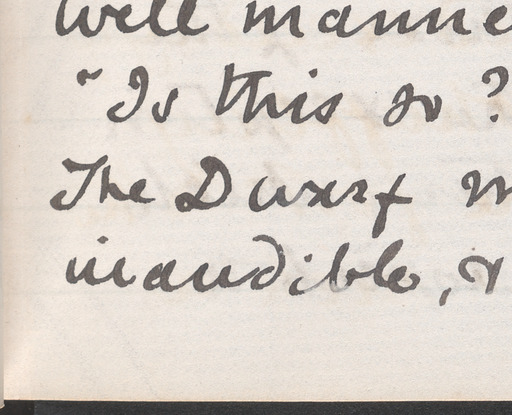 Well manne
"Is this so?
The Dwarf m
inaudible, &